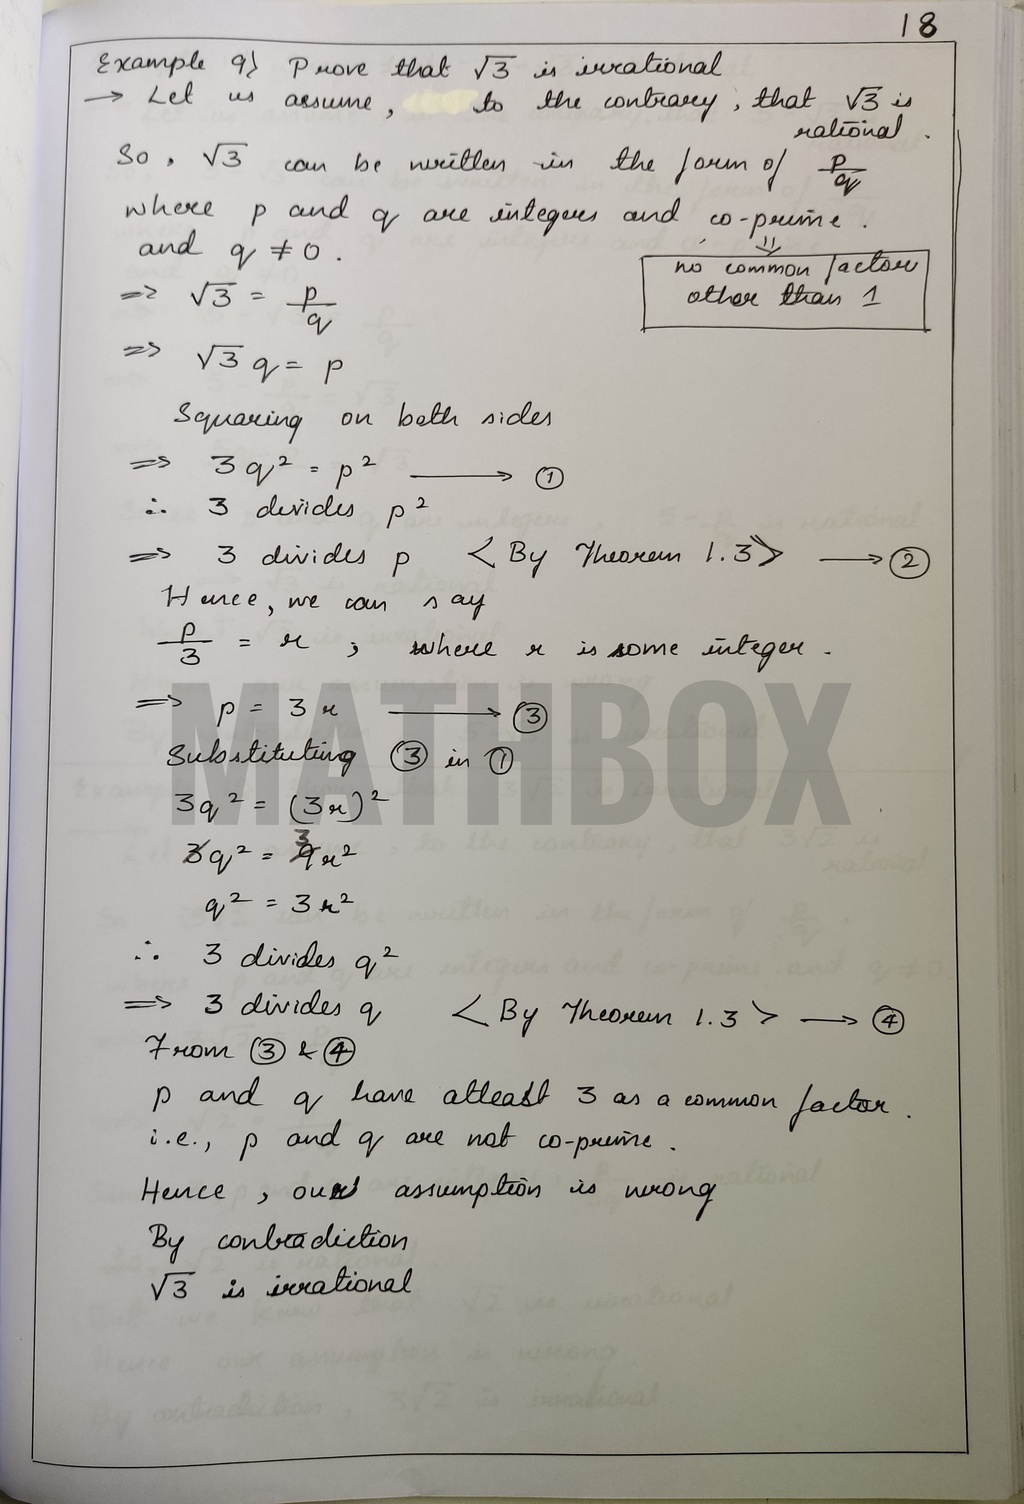 18
Example 9) Prove that √3 is irrational
→ Let us assume, to the contrary, that √3 is
rational.
So, √3 can be written in the form of p/q
where p and q are integers and co-prime.
and q ≠ 0.
⇓
no common factor
other than 1
=> √3 = p/q
=> √3 q = p
Squaring on both sides
=> 3q² = p² → ①
∴ 3 divides p²
=> 3 divides p <By Theorem 1.3> → ②
Hence, we can say
p/3 = r, where r is some integer.
=> p = 3r → ③
MATHBOX
Substituting ③ in ①
3q² = (3r)²
3q² = 9r² 3
q² = 3r²
∴ 3 divides q²
=> 3 divides q <By Theorem 1.3> → ④
From ③ & ④
p and q have atleast 3 as a common factor.
i.e., p and q are not co-prime.
Hence, our assumption is wrong
By contradiction
√3 is irrational